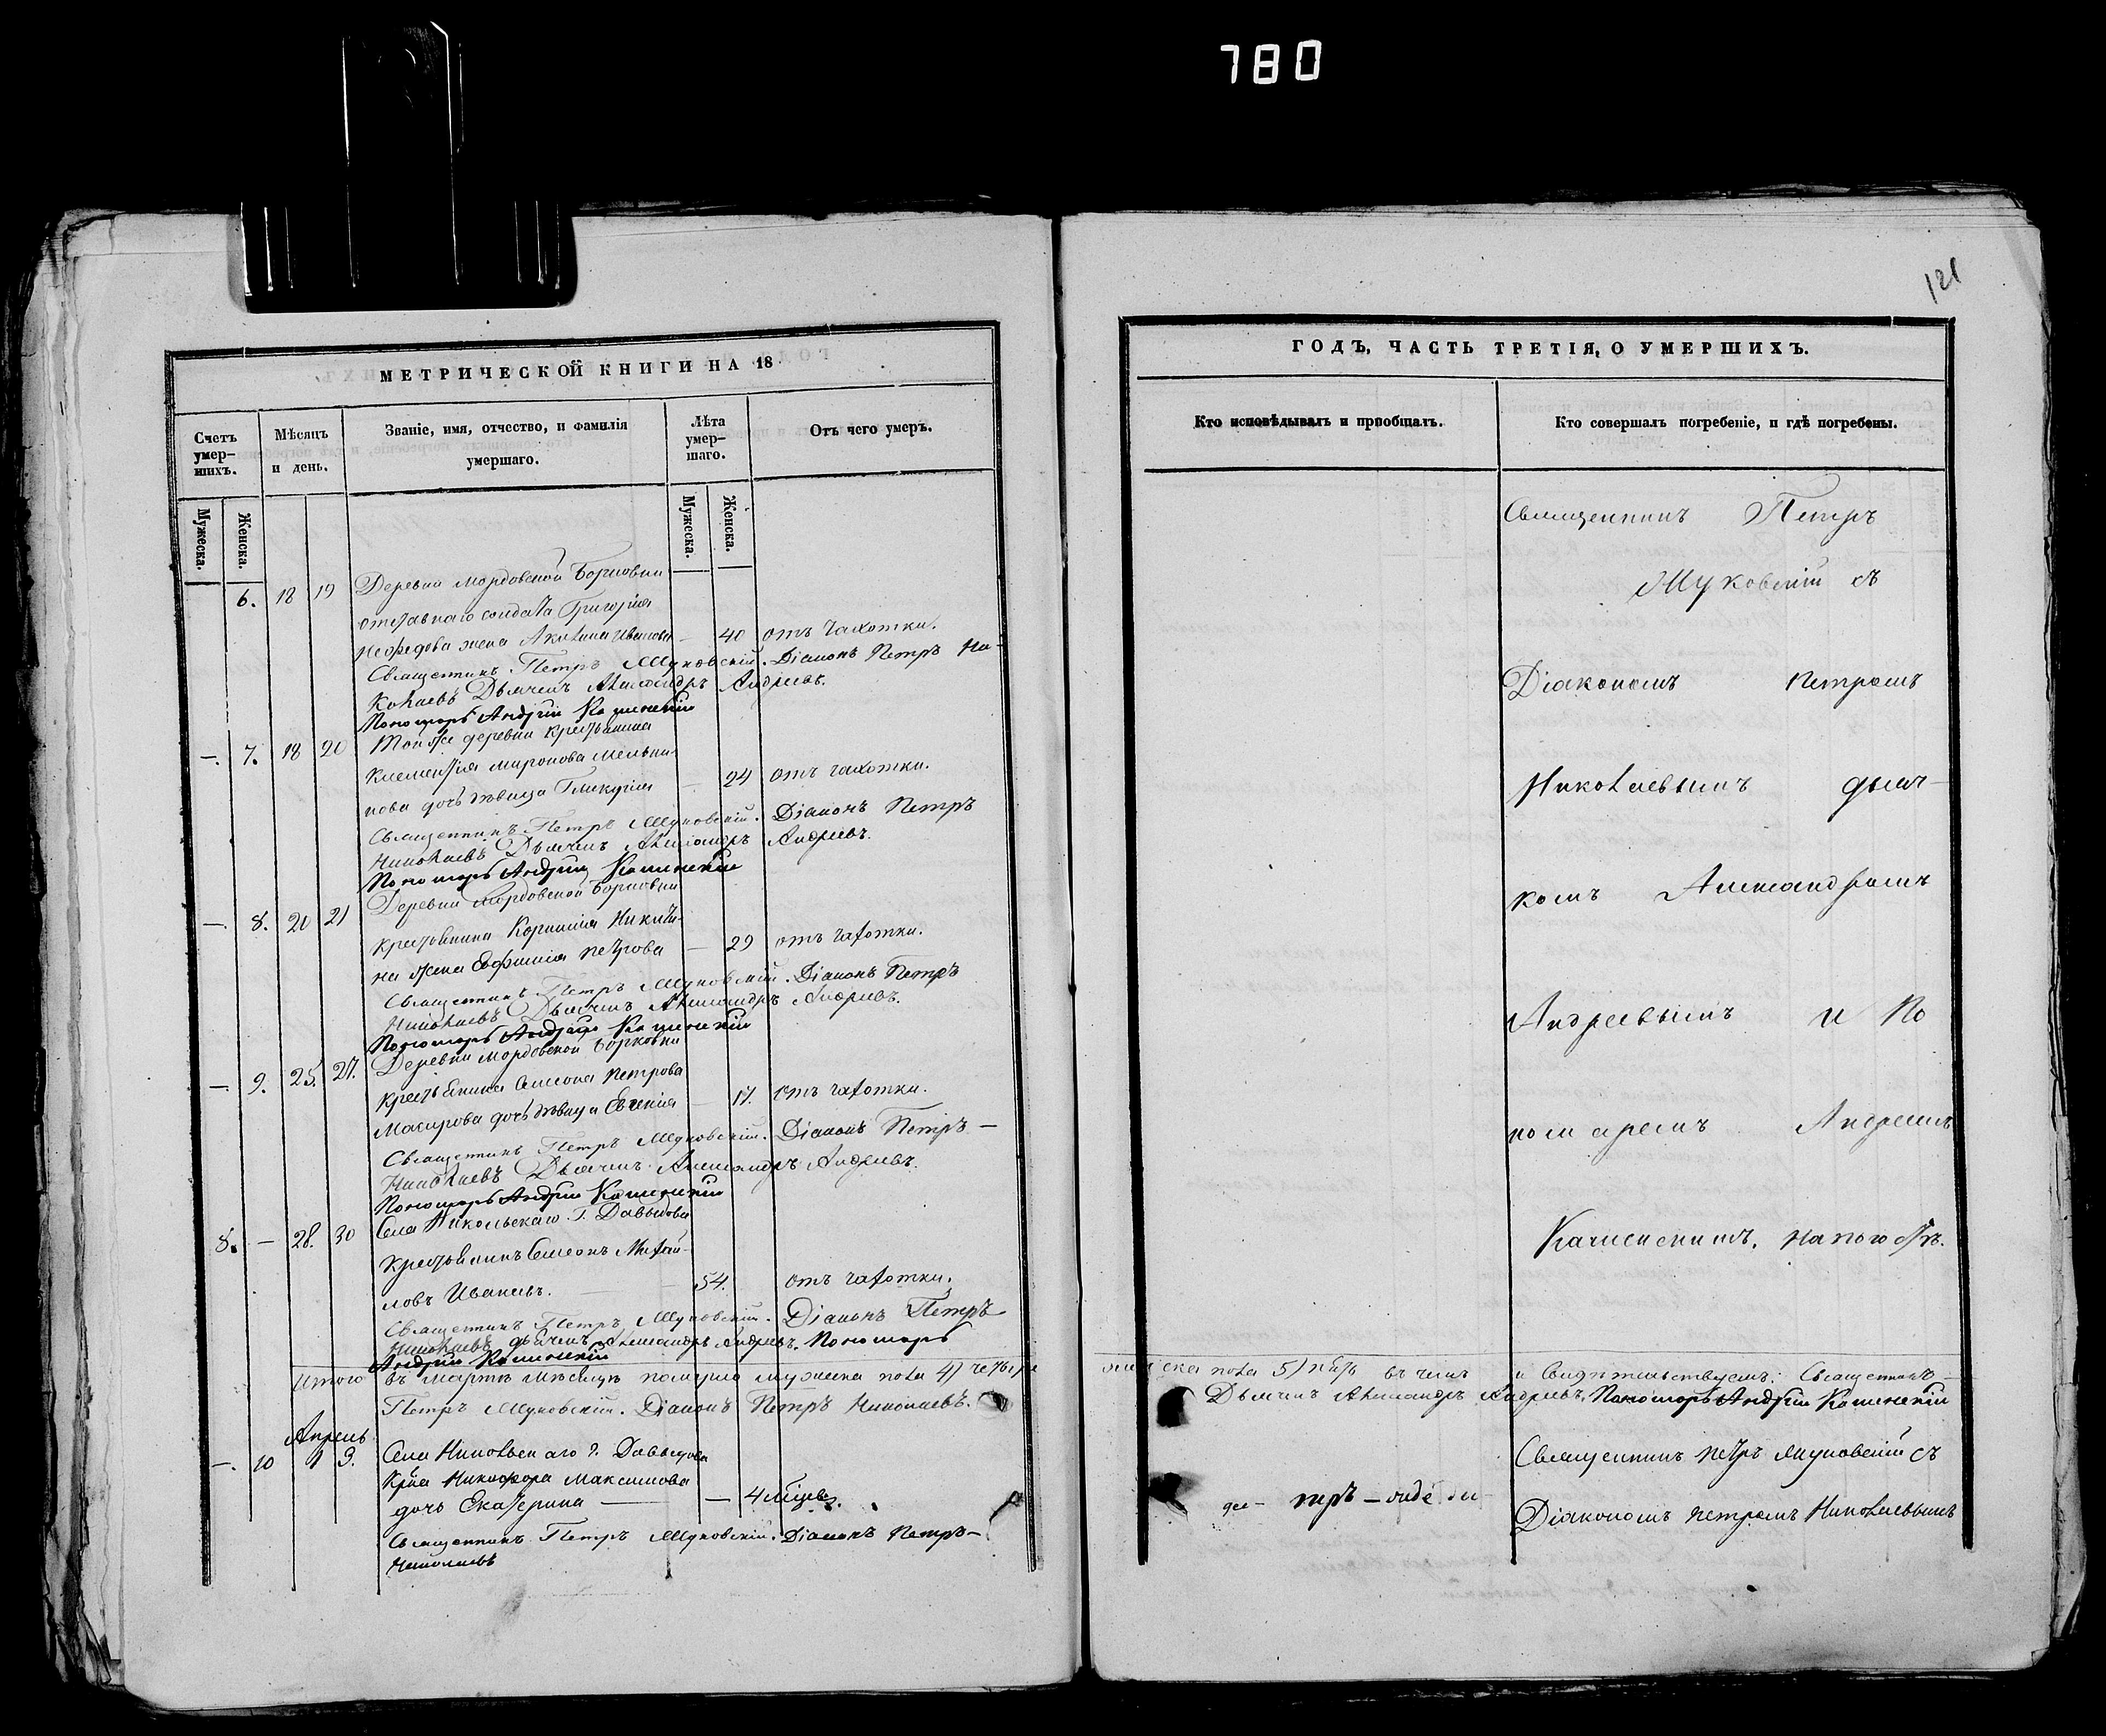 780
121
МЕТРИЧЕСКОЙ КНИГИ НА 18
Счетъ умер-шихъ.
Мѣсяцъ и день.
Званіе, имя, отчество, и фамилія умершаго.
Лѣта умер-шаго.
Отъ чего умеръ.
Мужеска.
Женска.
Мужеска.
Женска.
6. 18 19 Деревни Мордовской Борковки
отставнаго солдата Григорія
Нефедова жена Акилина Иванова — 40 отъ чахотки.
Священникъ Петръ Жуковскій. Діаконъ Петръ Ни-
колаевъ Дьячекъ Александръ Андреевъ.
Пономарь Андрей Каменскій
—. 7. 18 20 Той же деревни крестьянина
Клементія Миронова Мельни-
кова дочь дѣвица Гликерія — 24 отъ чахотки.
Священникъ Петръ Жуковскій. Діаконъ Петръ
Николаевъ Дьячекъ Александръ Андреевъ.
Пономарь Андрей Каменскій
—. 8. 20 21 Деревни Мордовской Борковки
крестьянина Корнилія Никити-
на жена Евфимія Петрова — 29 отъ чахотки.
Священникъ Петръ Жуковскій. Діаконъ Петръ
Николаевъ Дьячекъ Александръ Андреевъ.
Пономарь Андрей Каменскій
—. 9. 25. 27. Деревни Мордовской Борковки
крестьянина Симеона Петрова
дочь дѣвица Евгенія — 17. отъ чахотки.
Священникъ Петръ Жуковскій. Діаконъ Петръ —
Николаевъ Дьячекъ Александръ Андреевъ.
Пономарь Андрей Каменскій
8. — 28. 30 Села Никольскаго Г. Давыдова
крестьянинъ Симеонъ Михай-
ловъ Ивановъ. — 54. отъ чахотки.
Священникъ Петръ Жуковскій. Діаконъ Петръ
Николаевъ дьячекъ Александръ Андреевъ. Пономарь
Андрей Каменскій
Итого въ Мартѣ мѣсяцѣ померло мужеска пола 4) четыре
Петръ Жуковскій. Діаконъ Петръ Николаевъ.
Апрель
—. 10 1 3. Села Никольскаго Г. Давыдова
Кр̃на Никифора Максимова
дочь Екатерина — — 4 мѣсяц.
Священникъ Петръ Жуковскій. Діаконъ Петръ —
Николаевъ
ГОДЪ, ЧАСТЬ ТРЕТІЯ, О УМЕРШИХЪ.
Кто исповѣдывалъ и пріобщалъ.
Кто совершалъ погребеніе, и гдѣ погребены.
Священникъ Петръ
Жуковскій съ
Діакономъ Петромъ
Николаевымъ дьяч-
комъ Александромъ
Андреевымъ и По
номаремъ Андреемъ
Каменскимъ. на погостѣ.
женска пола 5) пять въ чемъ и Свидѣтельствуемъ: Священникъ —
Дьячекъ Александръ Андреевъ. Пономарь Андрей Каменскій
Священникъ Петръ Жуковскій съ
Діакономъ Петромъ Николаевымъ